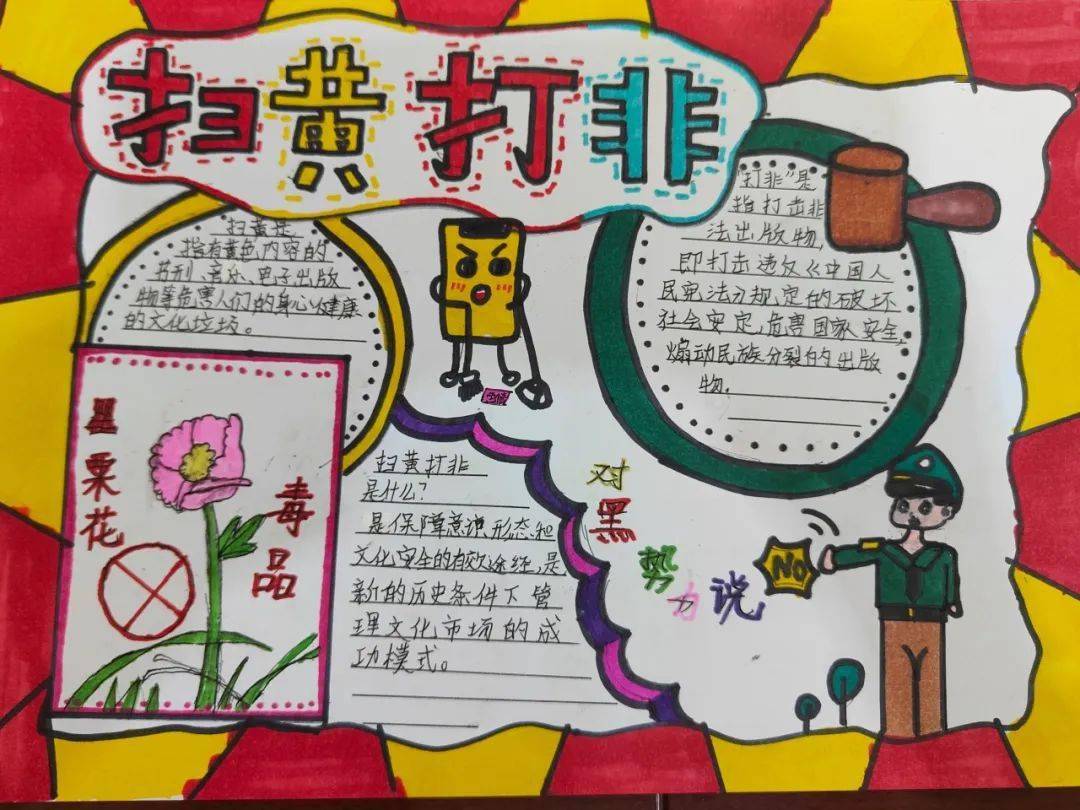 扫黄打非
扫黄是
指有黄色内容的
书刊、音乐、电子出版
物等危害人们的身心健康
的文化垃圾。
"打非"是
指打击非
法出版物,
即打击违反《中国人
民宪法》规定的破坏
社会安定,危害国家安全,
煽动民族分裂的出版
物.
罂粟花
毒品
扫黄打非
是什么?
是保障意识形态和
文化安全的有效途径,是
新的历史条件下管
理文化市场的成
功模式。
对黑势力说
NO